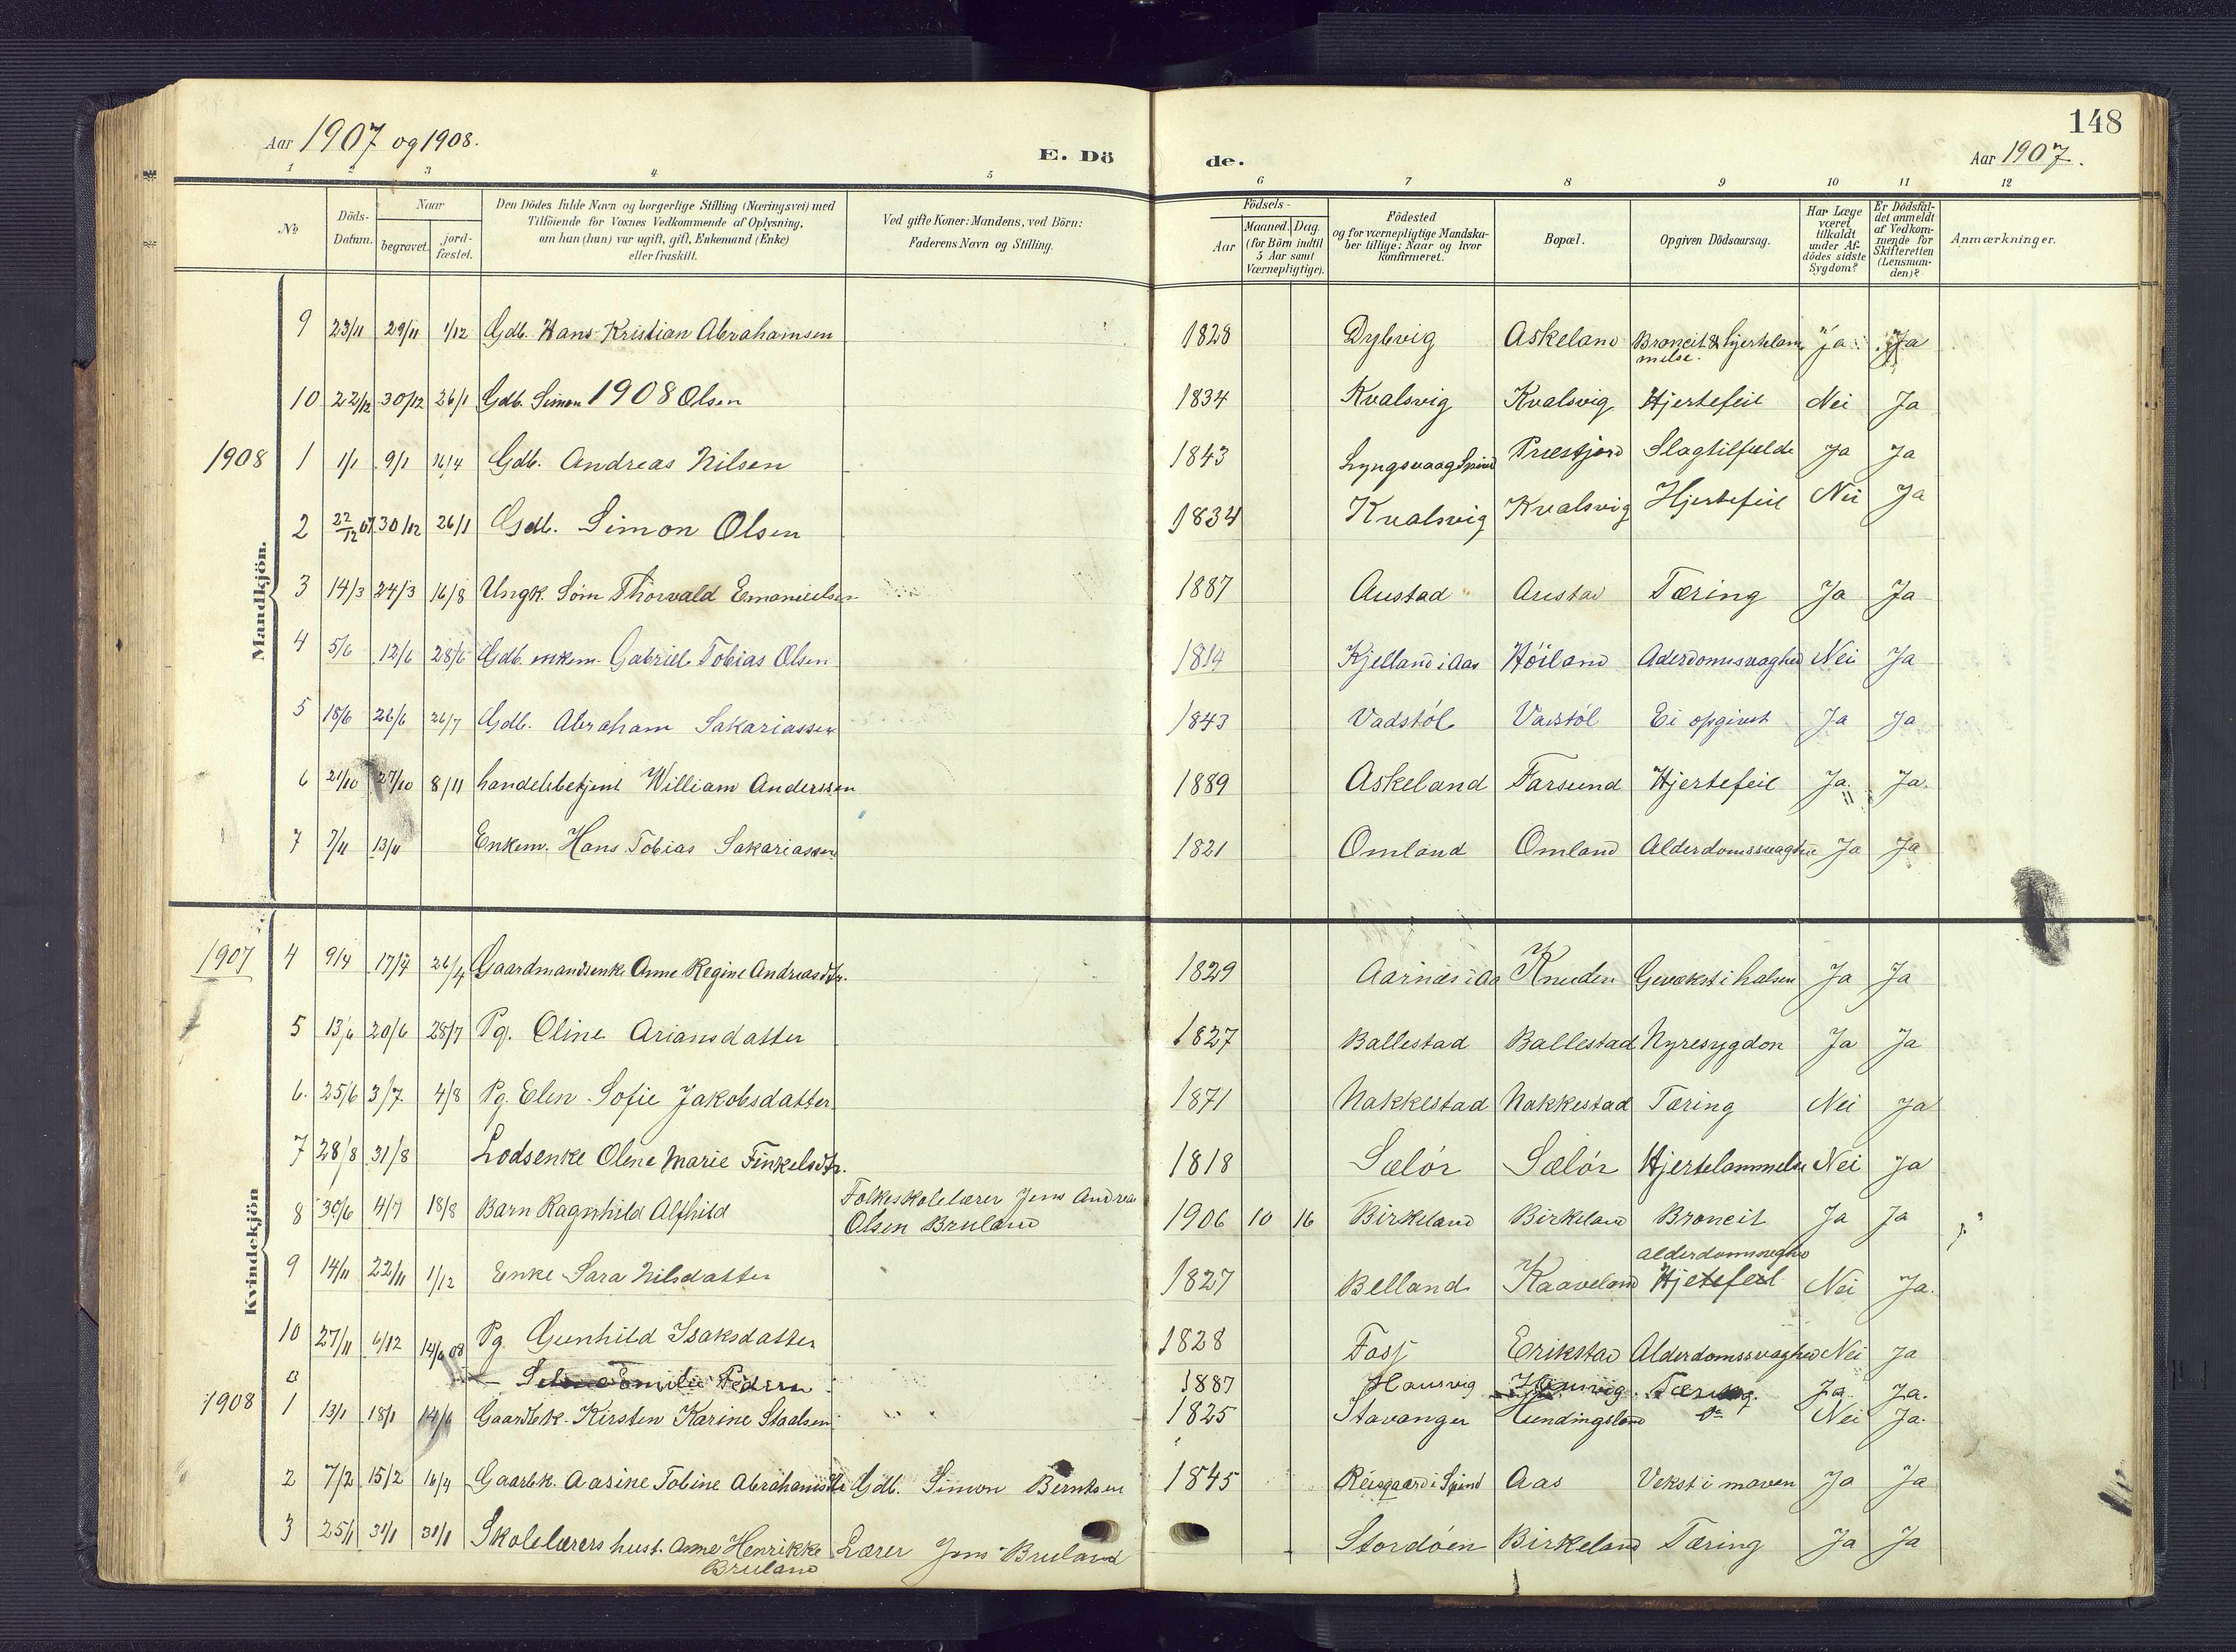 148
Aar 1907 og 1908.
E. Dö
de.
Aar 1907.
1 2 3 4 5 6 7 8 9 10 11 12
№
Döds-
Datum.
Naar
begravet.
jord-
fæstet.
Den Dödes fulde Navn og borgerlige Stilling (Næringsvei) med
Tilföiende for Voxnes Vedkommende af Oplysning,
om han (hun) var ugift, gift, Enkemand (Enke)
eller fraskilt.
Ved gifte Koner: Mandens, ved Börn:
Faderens Navn og Stilling.
Födsels-
Aar
Maaned. Dag.
(for Börn indtil
5 Aar samt
Værnepligtige).
Födested
og for værnepligtige Mandska-
ber tillige: Naar og hvor
konfirmeret.
Bopæl.
Opgiven Dödsaarsag.
Har Læge
været
tilkaldt
under Af-
dödes sidste
Sygdom?
Er Dödsfal-
det anmeldt
af Vedkom-
mende for
Skifteretten
(Lensman-
den)?
Anmærkninger.
Mandkjön.
9 23/11 29/11 1/12 Gdb. Hans Kristian Abrahamsen 1828 Dybvig Askeland Broncit & hjertelam
melse. Ja Ja
10 22/12 30/12 26/1 Gdb. Simon 1908 Olsen 1834 Kvalsvig Kvalsvig Hjertefeil Nei Ja
1908 1 1/1 9/1 16/4 Gdb. Andreas Nilsen 1843 Lyngsvaag Spind Præstjord Slagtilfælde Ja Ja
2 22/12 07 30/12 26/1 Gdb. Simon Olsen 1834 Kvalsvig Kvalsvig Hjertefeil Nei Ja
3 14/3 24/3 16/8 Ungk. Söm. Thorvald Emanuelsen 1887 Austad Austad Tæring Ja Ja
4 5/6 12/6 28/6 Gdb. enkem. Gabriel Tobias Olsen 1814 Kjelland i Aas Höiland Aderdomsvaghed Nei Ja
5 18/6 26/6 26/7 Gdb. Abraham Sakariassen 1843 Vadstöl Vadstöl Ei opgivet Ja Ja
6 21/10 27/10 8/11 handelsbetjent William Anderssen 1889 Askeland Farsund Hjertefeil Ja. Ja.
7 7/11 13/11 Enkem. Hans Tobias Sakariassen 1821 Omland Omland Alderdomssvaghed Ja Ja
Kvindekjön
1907 4 9/4 17/4 26/4 Gaardmandsenke Anne Regine Andreasdtr. 1829 Aarnæs i Aa Knuden Gevækst i halsen Ja Ja
5 13/6 20/6 28/7 Pg. Oline Ariansdatter 1827 Ballestad Ballestad Nyresygdon Ja Ja
6. 25/6 3/7. 4/8 Pg. Elen Sofie Jakobsdatter 1871 Nakkestad Nakkestad Tæring Nei Ja
7 28/8 31/8 Lodsenke Olene Marie Finkelsdtr. 1818 Sælör Sælör Hjertelammelse Nei Ja
8 30/6 4/7 18/8 Barn Ragnhild Alfhild Folkeskolelærer Jens Andreas
Olsen Bruland 1906 10 16 Birkeland Birkeland Broncit Ja Ja
9 14/11 22/11 1/12 Enke Sara Nilsdatter 1827 Belland Kaaveland Alderdomssvaghed
Hjetefeil Nei Ja.
10 27/11 6/12 14/6 08 Pg Gunhild Isaksdatter 1828 Foss Erikstad Alderdomssvaghed Nei Ja
1887 Hausvig Hausvig Tæring. Ja Ja.
1908 1 13/1 18/1 14/6 Gaardbk. Kirsten Karine Staalsen 1825 Stavanger Lundingsland Nei Ja.
2 7/2 15/2 16/4 Gaardbk. Aasine Tobine Abrahamsdtr Gdb. Simon Berntsen 1845 Reisgaard i Spind Aas Vekst i maven Ja Ja
3 25/1 31/1 31/1 Skolelærers hust. Anne Henrikke
Bruland Lærer Jens Bruland Stordöen Birkeland Tæring Ja Ja